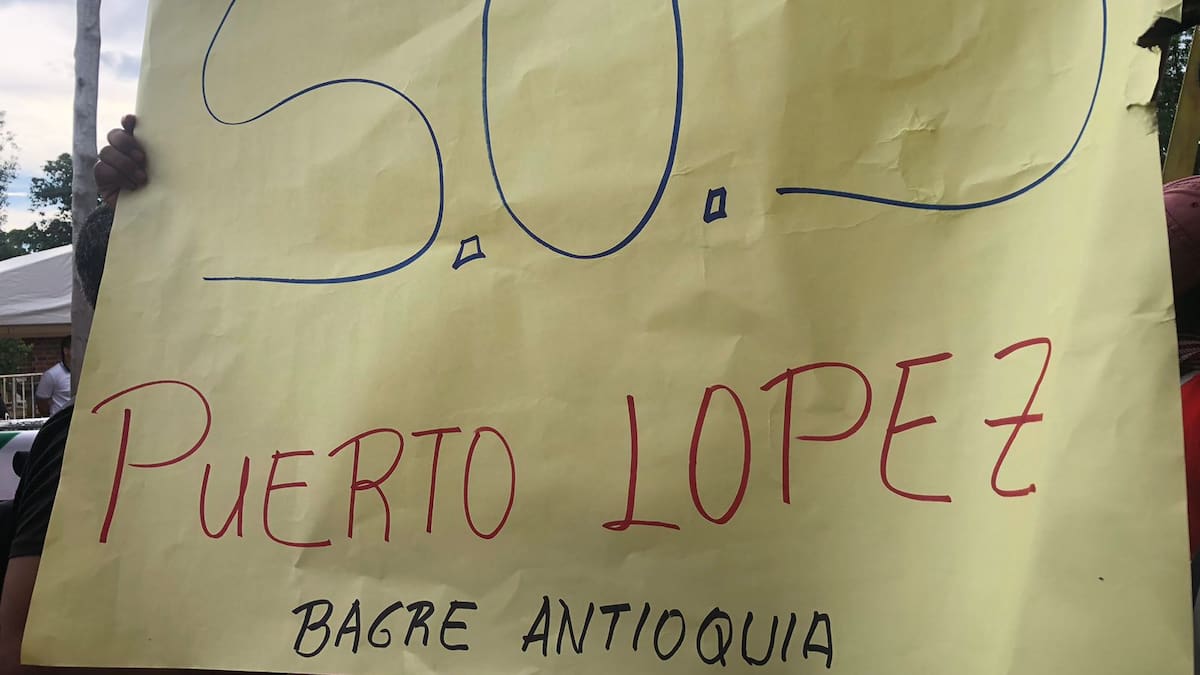 S.O.S
PUERTO LOPEZ
BAGRE ANTIOQUIA